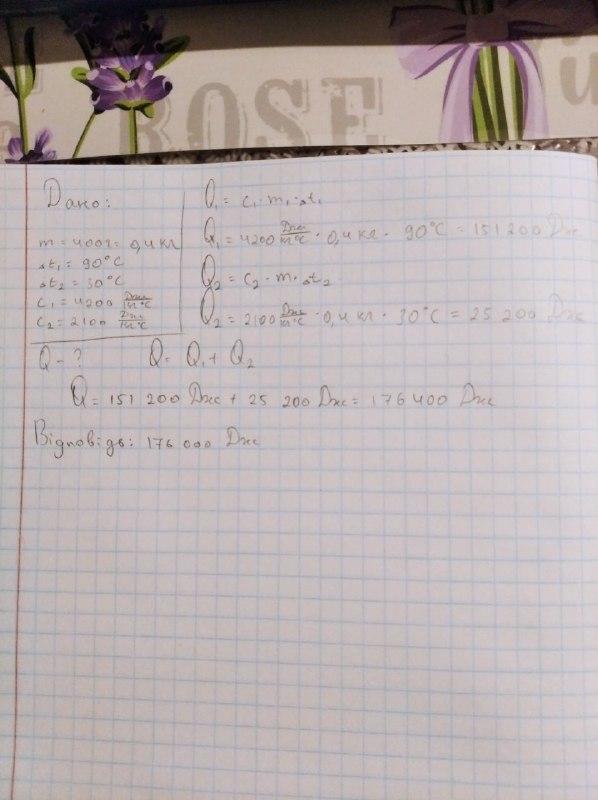 ROSE
Дано:
m = 400г = 0,4 кг
Δt₁ = 90°C
Δt₂ = 30°C
c₁ = 4200 Дж/кг°C
c₂ = 2100 Дж/кг°C
Q - ?
Q₁ = c₁ · m₁ · Δt₁
Q₁ = 4200 Дж/кг°C · 0,4 кг · 90°C = 151 200 Дж
Q₂ = c₂ · m · Δt₂
Q₂ = 2100 Дж/кг°C · 0,4 кг · 30°C = 25 200 Дж
Q = Q₁ + Q₂
Q = 151 200 Дж + 25 200 Дж = 176 400 Дж
Відповідь: 176 000 Дж